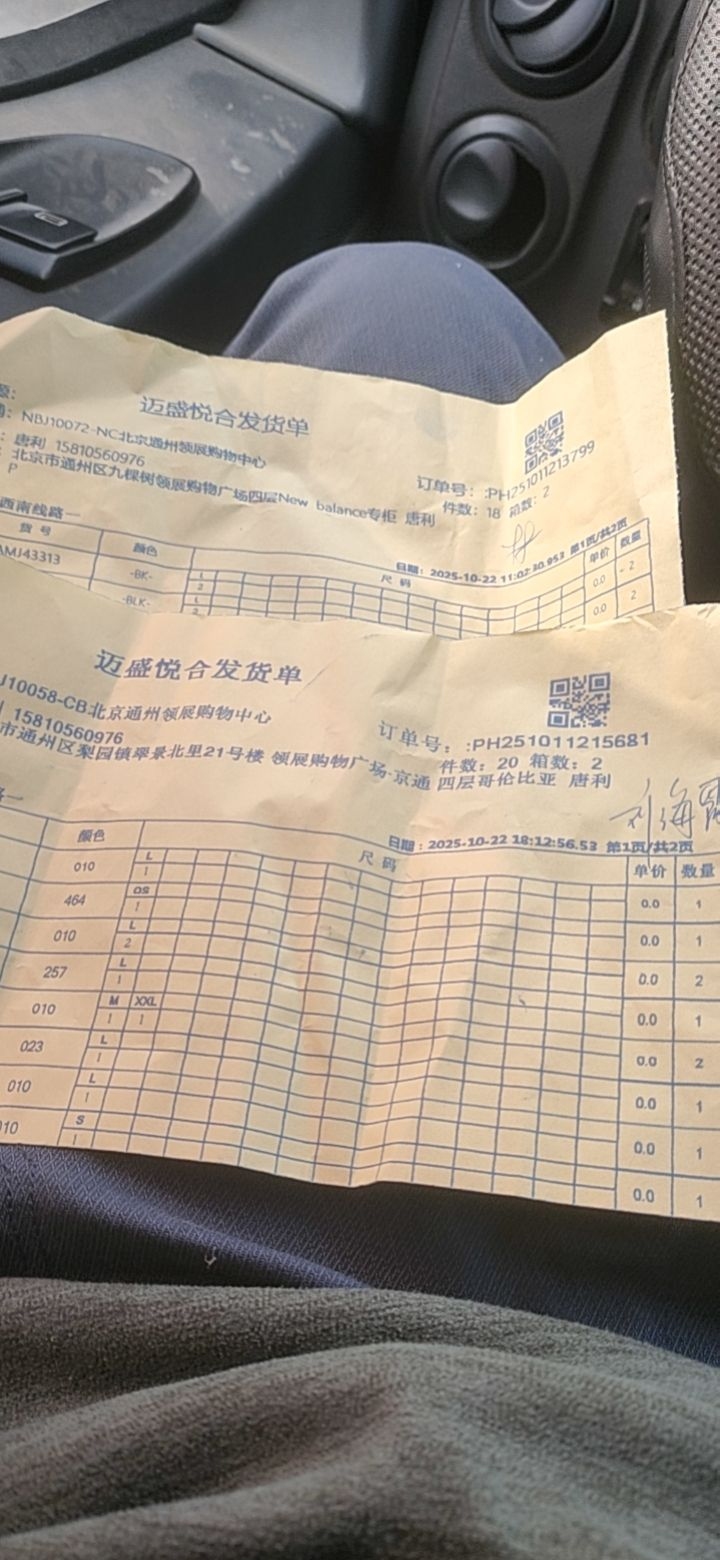 源:
迈盛悦合发货单
: NBJ10072-NC北京通州领展购物中心
: 唐利 15810560976
订单号: :PH251011213799
: 北京市通州区九棵树领展购物广场四层New balance专柜 唐利
件数: 18 箱数: 2
P
西南线路一
日期: 2025-10-22 11:02:30.953 第1页/共2页
货号 颜色 尺码 单价 数量
AMJ43313 -BK- L 0.0 2
2
-BLK- L 0.0 2
2
迈盛悦合发货单
J10058-CB北京通州领展购物中心
订单号: :PH251011215681
15810560976
件数: 20 箱数: 2
市通州区梨园镇翠景北里21号楼 领展购物广场·京通 四层哥伦比亚 唐利
刘海
路一
日期: 2025-10-22 18:12:56.53 第1页/共2页
颜色 尺码 单价 数量
010 L 0.0 1
1
464 OS 0.0 1
1
010 L 0.0 2
2
257 L 0.0 1
1
010 M XXL 0.0 2
1 1
023 L 0.0 1
1
010 L 0.0 1
1
010 S 0.0 1
1